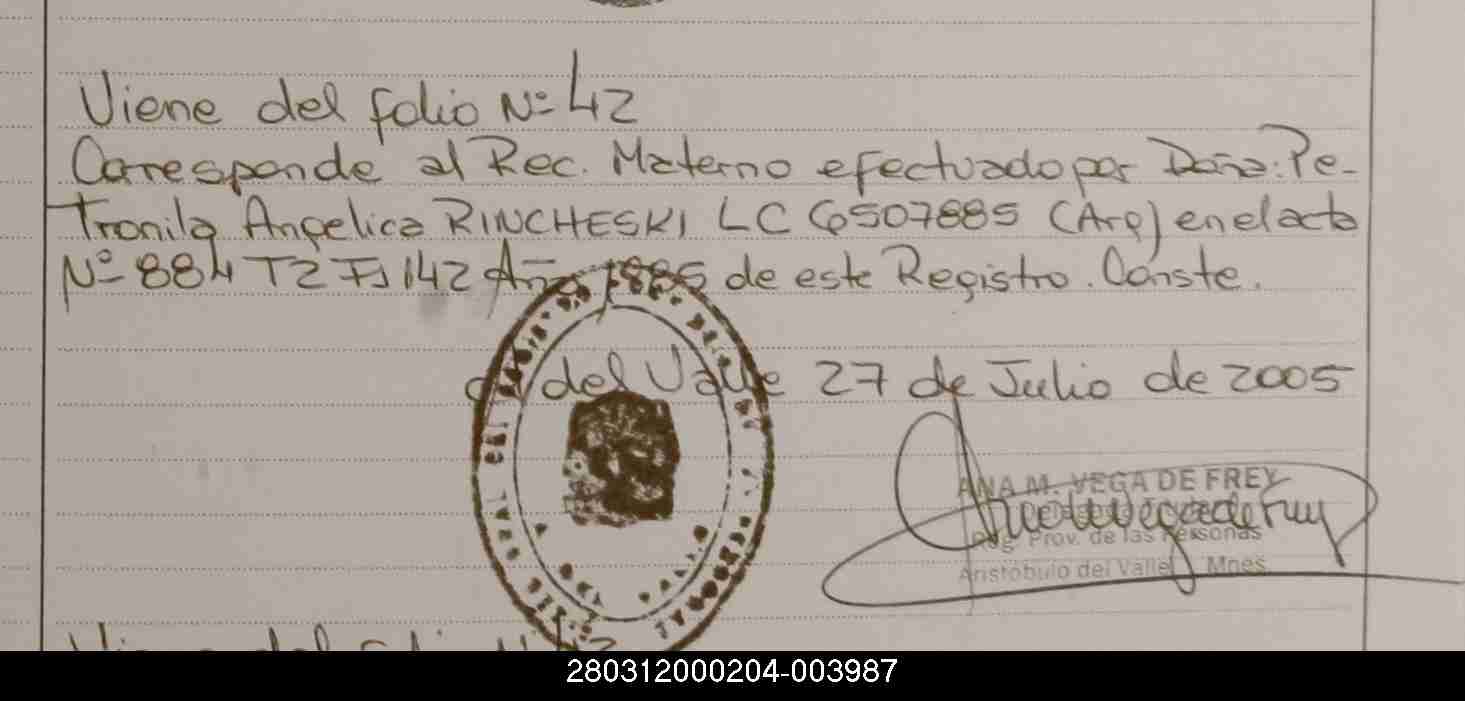 Viene del folio Nº 42
Corresponde al Rec. Materno efectuado por Doña: Pe-
tronila Angelica RINCHESKI LC 6507885 (Arg) en el acta
Nº 884 T2 Fº 142 Año 1986 de este Registro. Conste.
del Valle 27 de Julio de 2005
ANA M. VEGA DE FREY
Reg. Prov. de las Personas
Aristóbulo del Valle Mnes.
Viene del
280312000204-003987